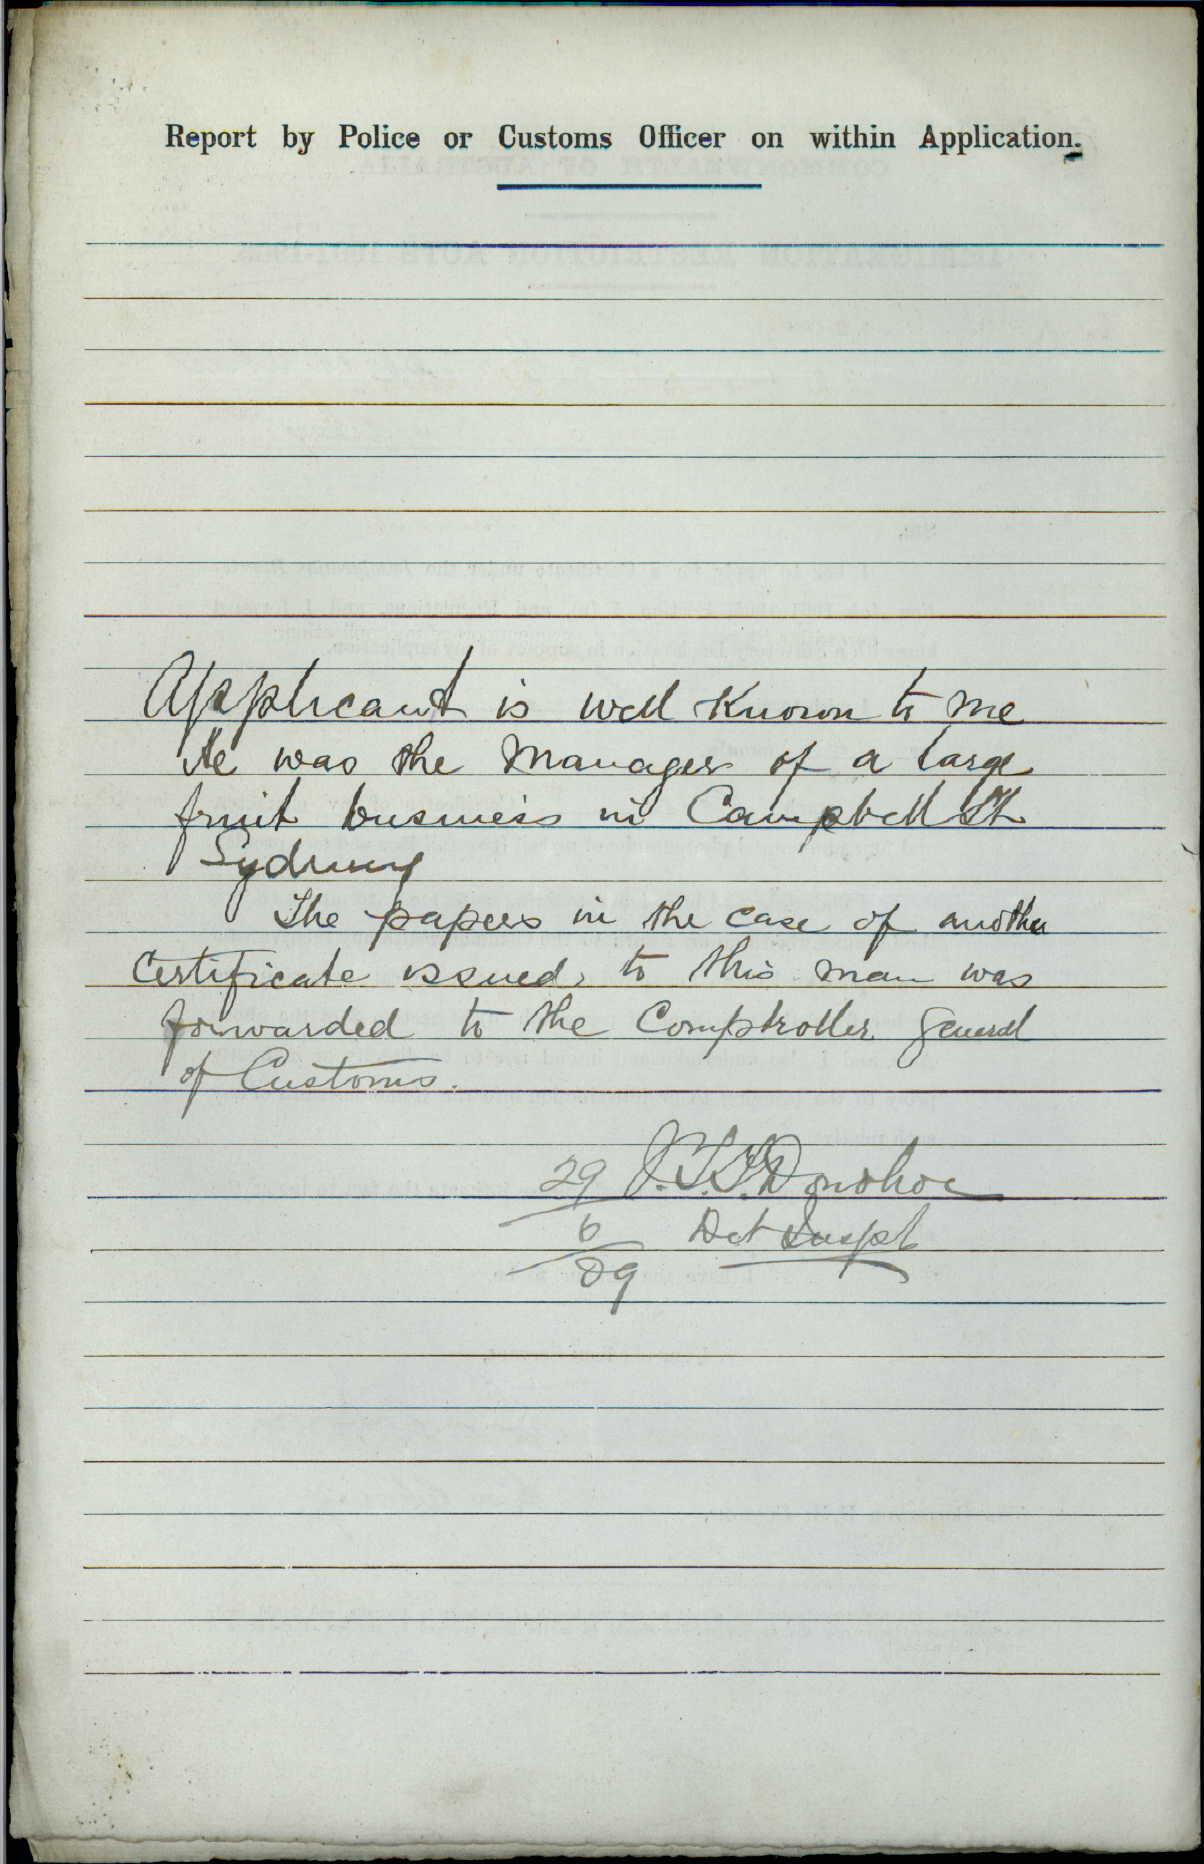 Report by Police or Customs Officer on within Application.
Applicant is well known to me
He was the Manager of a large
fruit business in Campbell St
Sydney
The papers in the case of another
Certificate issued to this man was
forwarded to the Comptroller General
of Customs.
29 J.T.T. Donohoe
6 Det Inspt
09